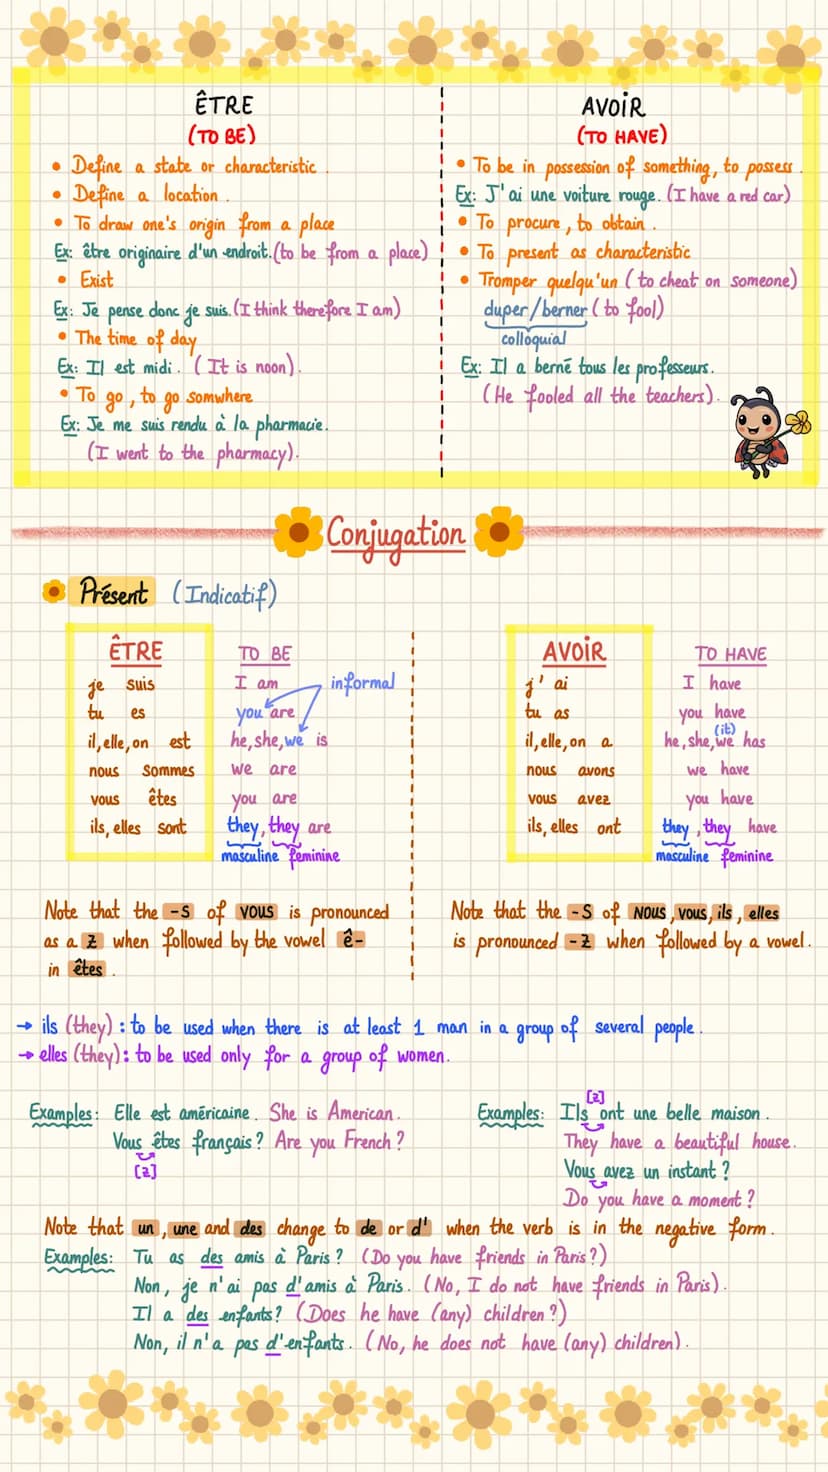 ÊTRE
(TO BE)
• Define a state or characteristic.
• Define a location.
• To draw one's origin from a place
Ex: être originaire d'un endroit. (to be from a place)
• Exist
Ex: Je pense donc je suis. (I think therefore I am)
• The time of day
Ex: Il est midi. (It is noon).
• To go, to go somwhere
Ex: Je me suis rendu à la pharmacie.
(I went to the pharmacy).
AVOIR
(TO HAVE)
• To be in possession of something, to possess.
Ex: J'ai une voiture rouge. (I have a red car)
• To procure, to obtain.
• To present as characteristic
• Tromper quelqu'un (to cheat on someone)
duper/berner (to fool)
colloquial
Ex: Il a berné tous les professeurs.
(He fooled all the teachers).
Conjugation
Présent (Indicatif)
ÊTRE TO BE
je suis I am informal
tu es you are
il, elle, on est he, she, we is
nous sommes we are
vous êtes you are
ils, elles sont they, they are
masculine feminine
AVOIR TO HAVE
j' ai I have
tu as you have
(it)
il, elle, on a he, she, we has
nous avons we have
vous avez you have
ils, elles ont they, they have
masculine feminine
Note that the -S of VOUS is pronounced
as a Z when followed by the vowel ê-
in êtes.
Note that the -S of NOUS, VOUS, ils, elles
is pronounced -Z when followed by a vowel.
→ ils (they): to be used when there is at least 1 man in a group of several people.
→ elles (they): to be used only for a group of women.
Examples: Elle est américaine. She is American.
Vous êtes français? Are you French?
[z]
[z]
Examples: Ils ont une belle maison.
They have a beautiful house.
Vous avez un instant?
Do you have a moment?
Note that un, une and des change to de or d' when the verb is in the negative form.
Examples: Tu as des amis à Paris? (Do you have friends in Paris?)
Non, je n'ai pas d'amis à Paris. (No, I do not have friends in Paris).
Il a des enfants? (Does he have (any) children?)
Non, il n'a pas d'enfants. (No, he does not have (any) children).